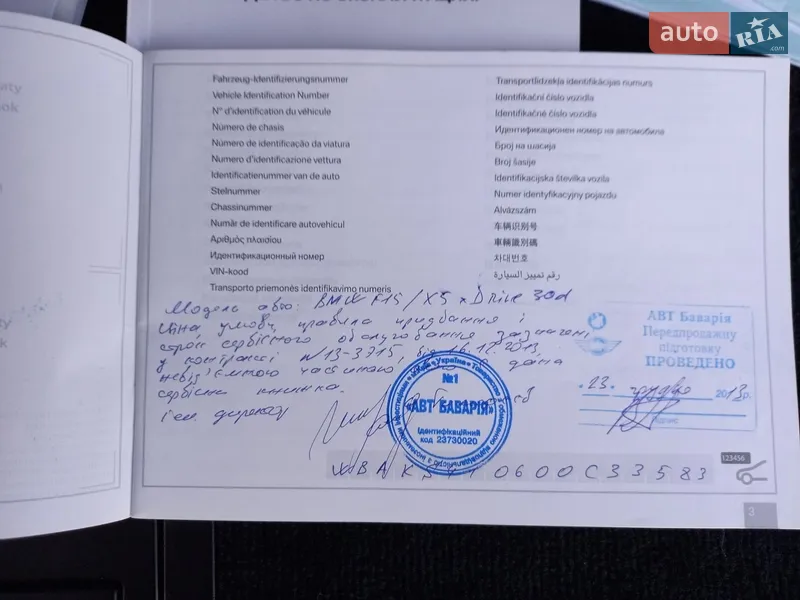 auto RIA .com
Fahrzeug-Identifizierungsnummer
Vehicle Identification Number
N° d'identification du véhicule
Número de chasis
Número de identificação da viatura
Numero d'identificazione vettura
Identificatienummer van de auto
Stelnummer
Chassinummer
Număr de identificare autovehicul
Αριθμός πλαισίου
Идентификационный номер
VIN-kood
Transporto priemonės identifikavimo numeris
Transportlīdzekļa identifikācijas numurs
Identifikační číslo vozidla
Identifikačné číslo vozidla
Идентификационен номер на автомобила
Број на шасија
Broj šasije
Identifikacijska številka vozila
Numer identyfikacyjny pojazdu
Alvázszám
车辆识别号
車輛識別碼
차대번호
رقم تمييز السيارة
Модель авто: BMW F15 / X5 xDrive 30d
Ціна, умови, правила придбання і
строк сервісного обслуговування зазначені
у контракті №13-3715, від 16.12.2013,
невід'ємною частиною дана
сервісна книжка.
Ген. директор
Україна
№1
«АВТ БАВАРІЯ»
Ідентифікаційний
код 23730020
АВТ Баварія
Передпродажну
підготовку
ПРОВЕДЕНО
"23" грудня 2013р.
підпис
0600C33583
123456
3